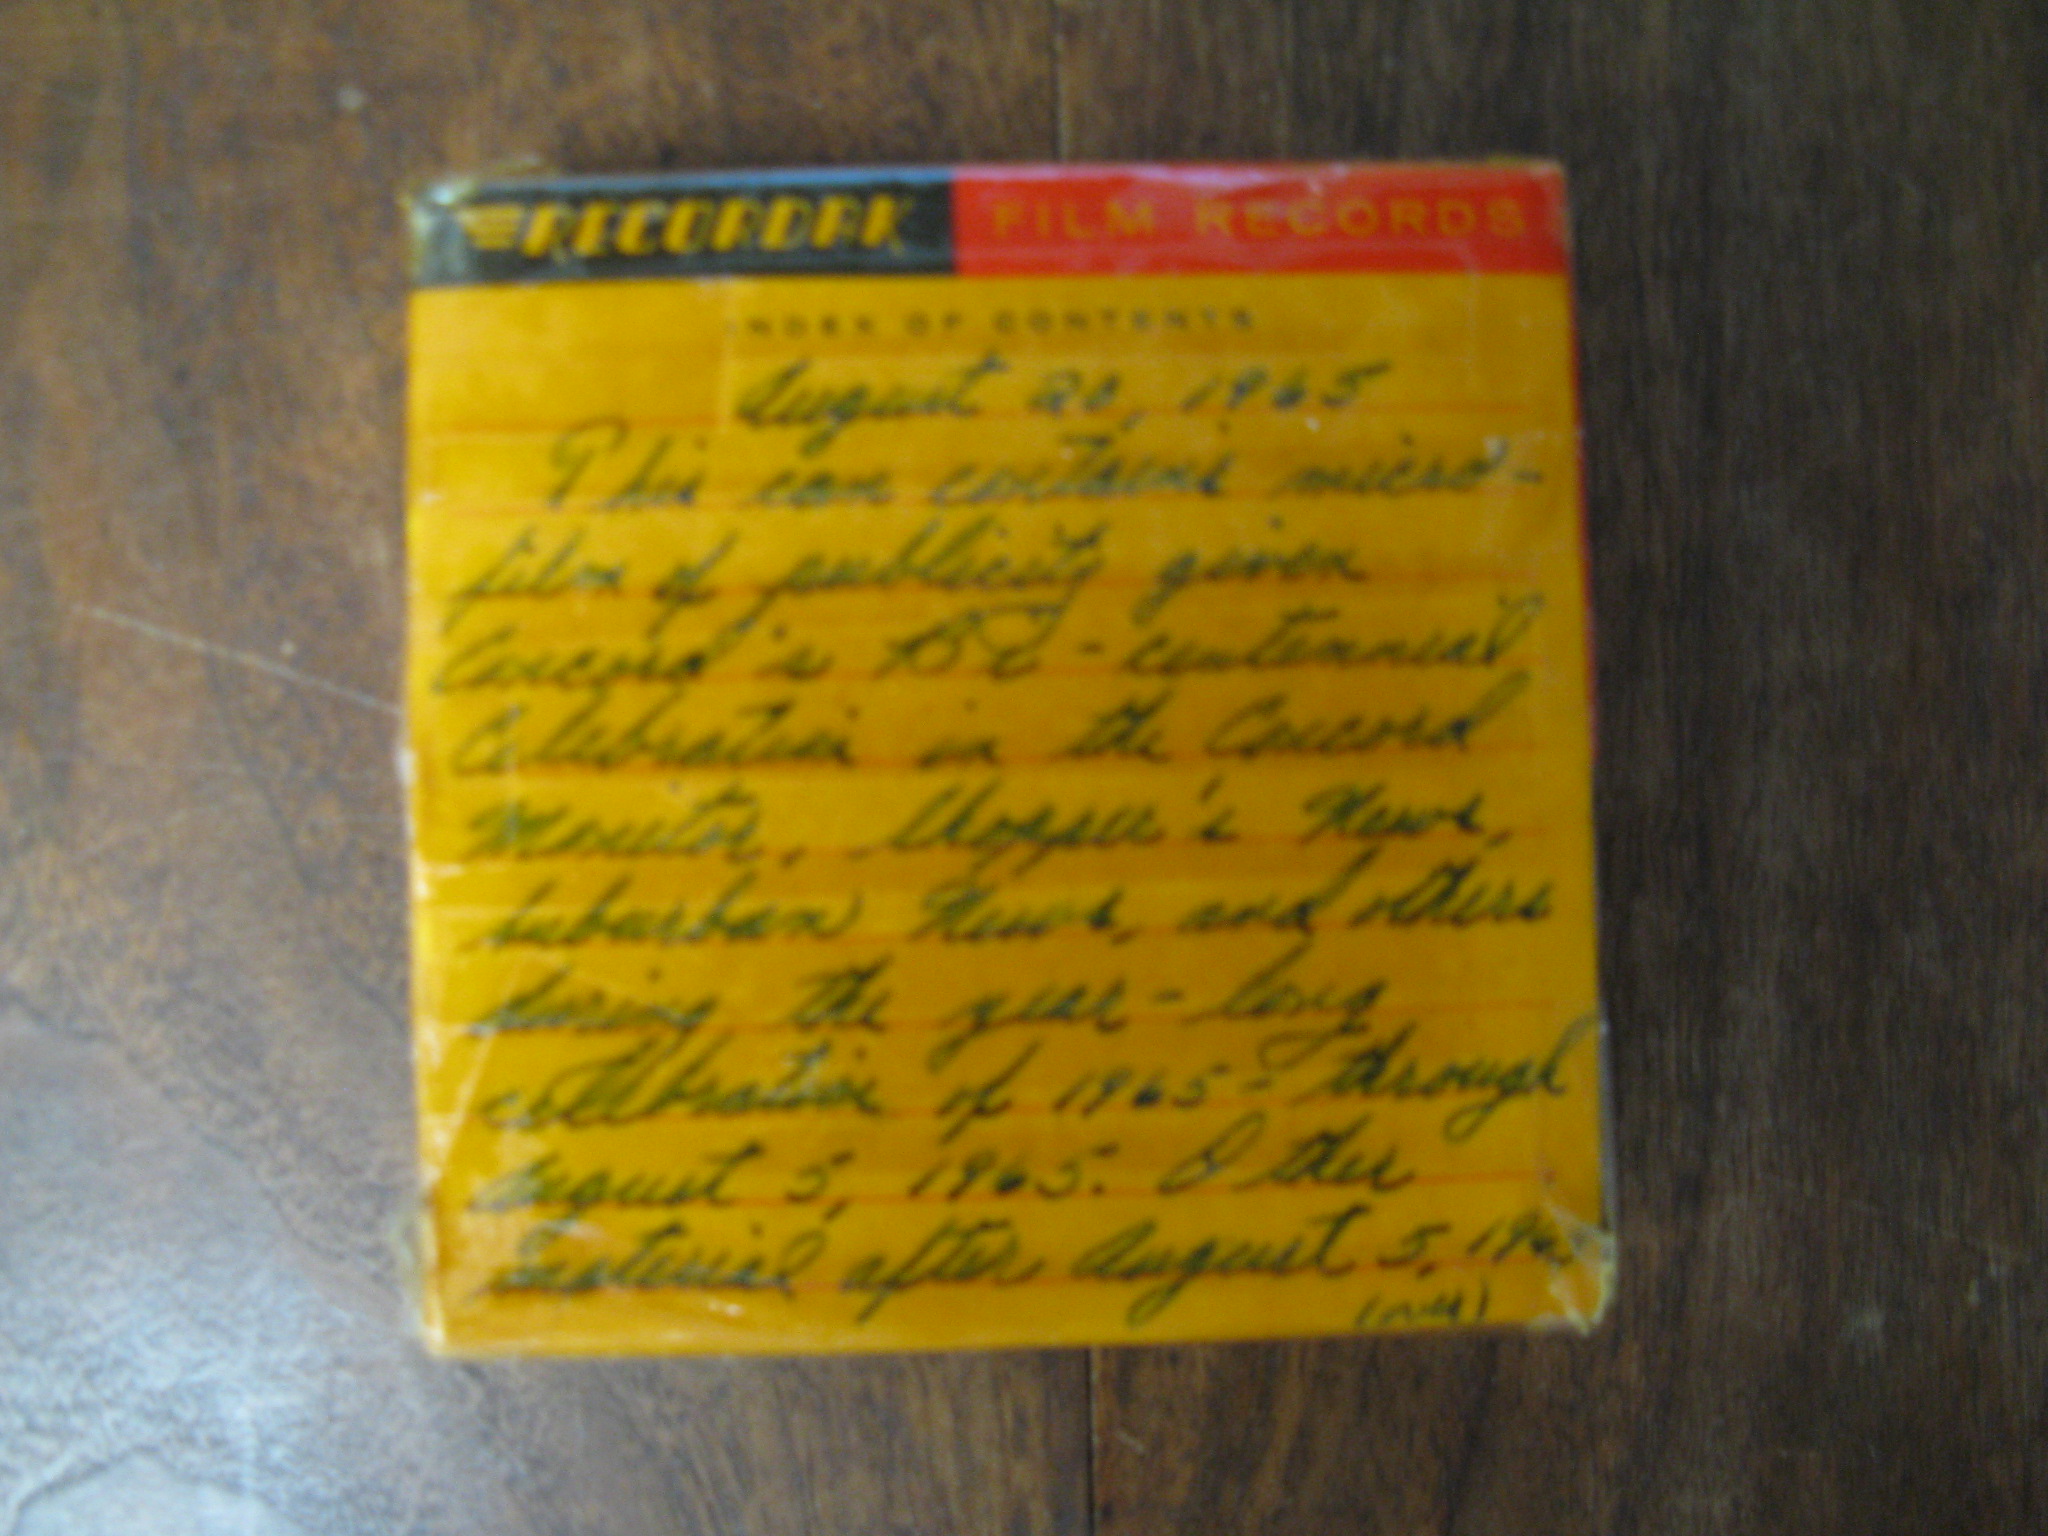 RECORDAK FILM RECORDS
INDEX OF CONTENTS
August 20, 1965
This can contains micro-
film of publicity given
Concord's Bi-centennial
Celebration in the Concord
Monitor, Shopper's News,
Suburban News, and others
during the year-long
celebration of 1965- through
August 5, 1965. Other
material after August 5, 1965
(over)